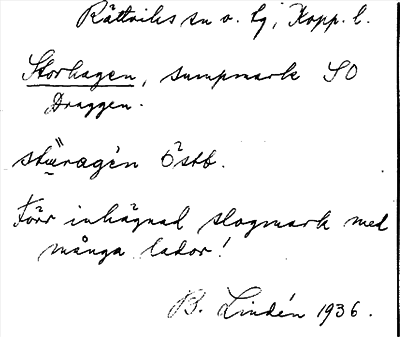 Rättviks sn o. tg, Kopp. l.
Storhagen, sumpmark SO
Draggen.
Östb.
Förr inhägnad slogmark med
många lador!
B. Lindén 1936.